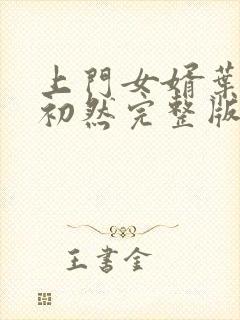 上門女婿葉
初然完整版
王書金